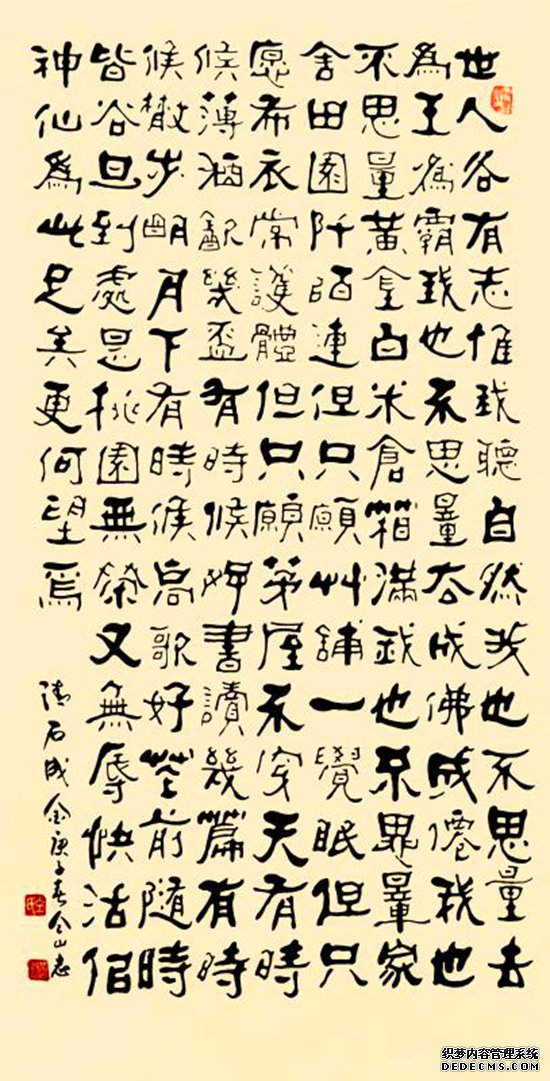 世人各有志惟我聽自然我也不思量去
為王為霸我也不思量去成佛成僊我也
不思量黃金白米倉箱滿我也不思量家
舍田園阡陌連但只願艸鋪一覺眠但只
愿布衣常護體但只願茅屋不穿天有時
候薄酒飲幾盃有時候好書讀幾篇有時
候散步明月下有時候高歌好花前隨時
皆谷旦到處是桃園無榮又無辱快活似
神仙為此足矣更何望焉
清石成金庚子春全山志
织梦内容管理系统
DEDECMS.COM